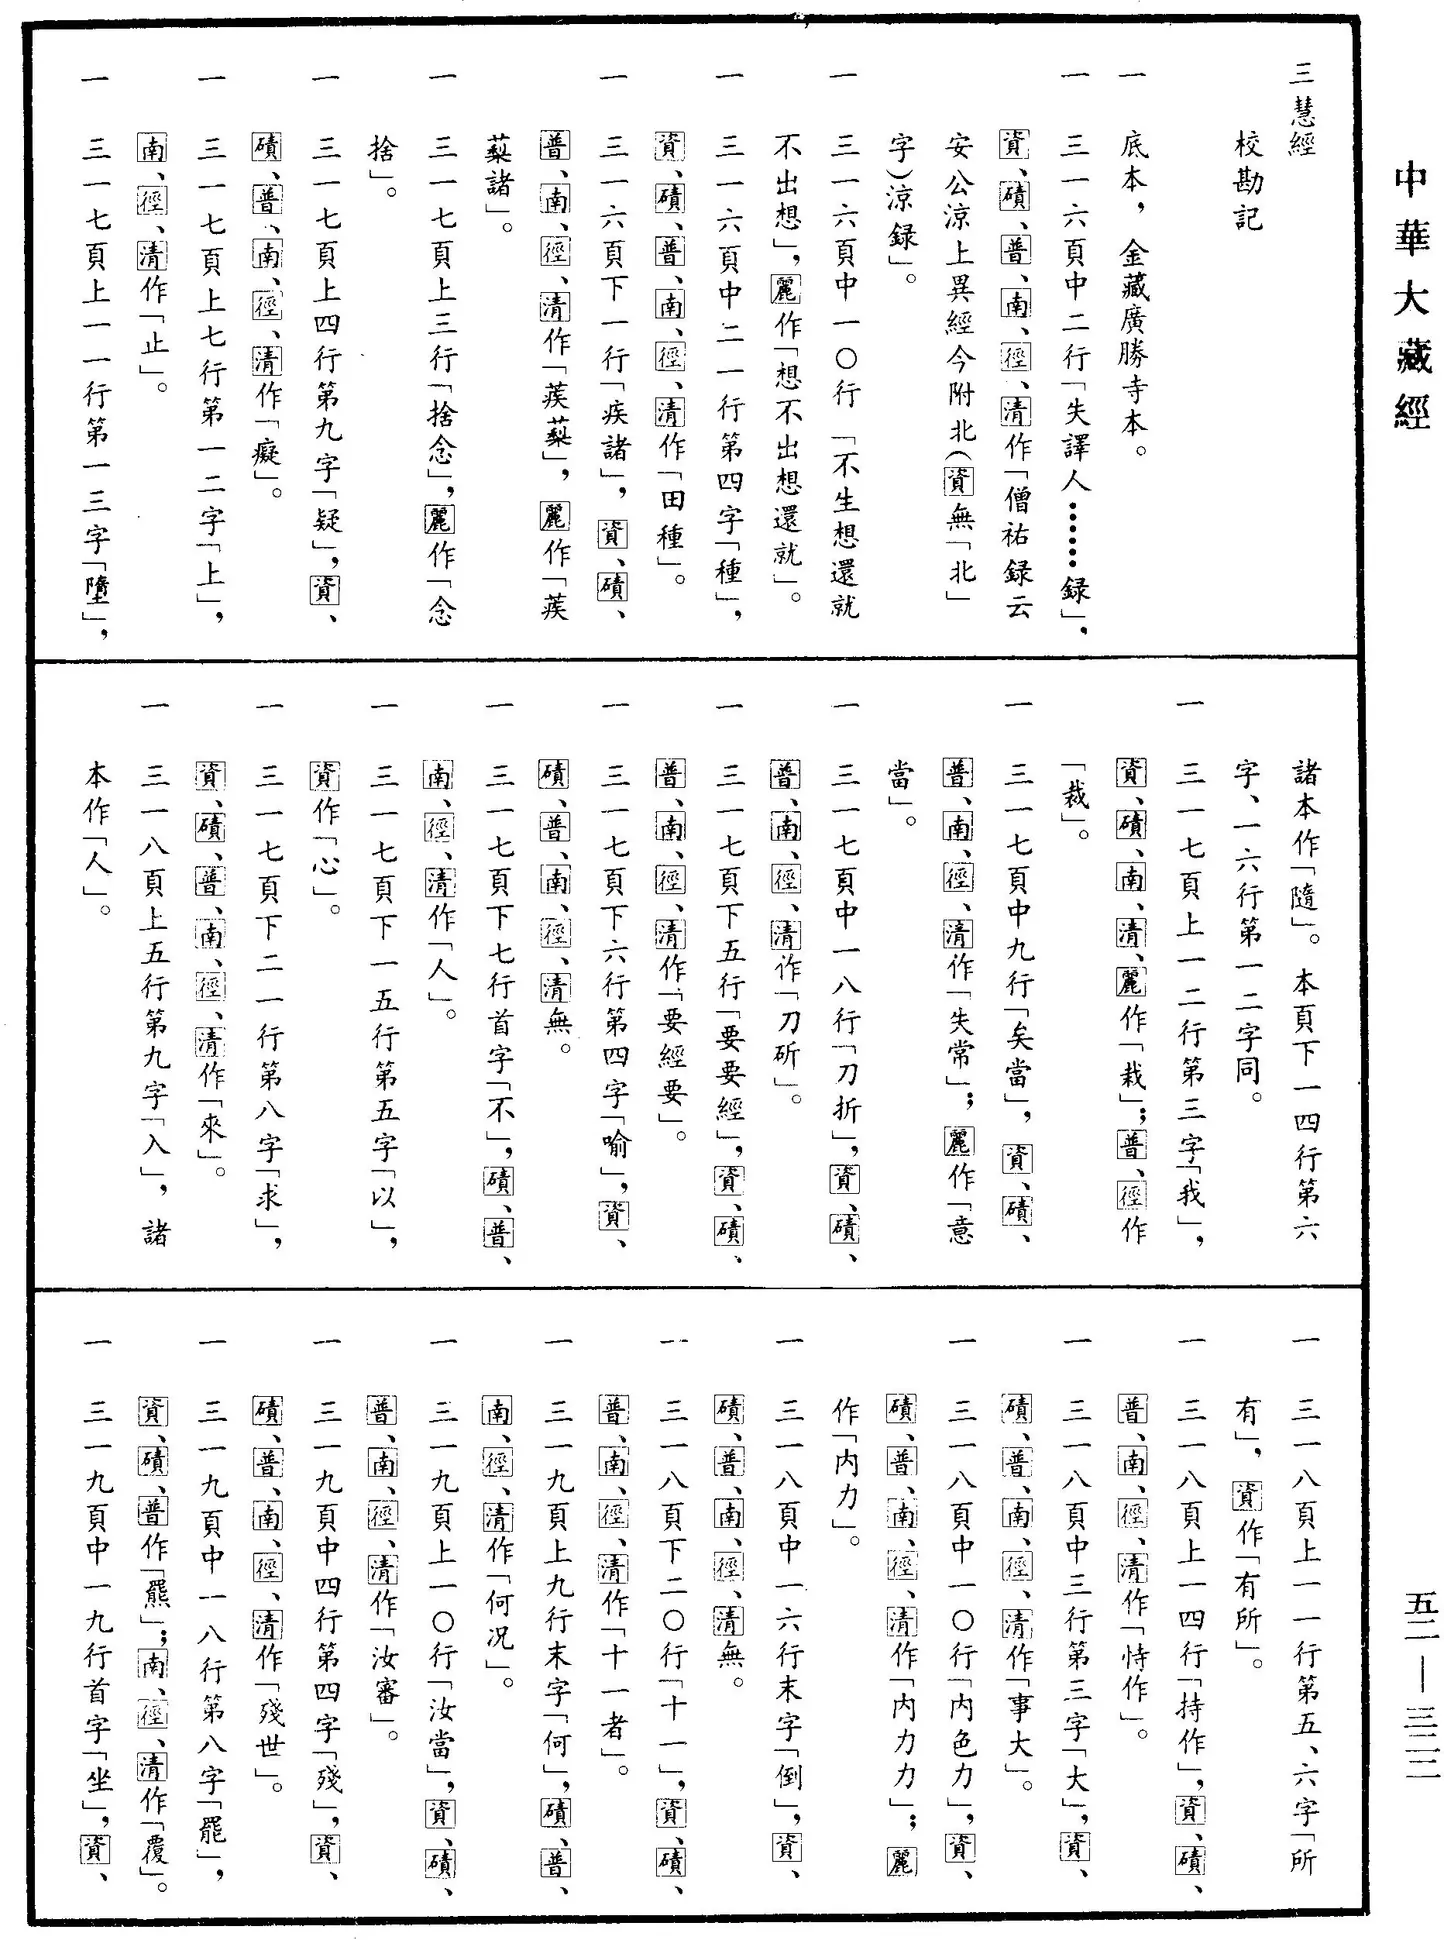 中華大藏經
三慧經
校勘記
一　底本，金藏廣勝寺本。
一　三一六頁中二行「失譯人……録」，
資、磧、普、南、徑、清作「僧祐録云
安公涼上異經今附北（資無「北」
字）涼録」。
一　三一六頁中一〇行「不生想還就
不出想」，麗作「想不出想還就」。
一　三一六頁中二一行第四字「種」，
資、磧、普、南、徑、清作「田種」。
一　三一六頁下一行「疾諸」，資、磧、
普、南、徑、清作「蒺䔧」，麗作「蒺
䔧諸」。
一　三一七頁上三行「捨念」，麗作「念
捨」。
一　三一七頁上四行第九字「疑」，資、
磧、普、南、徑、清作「癡」。
一　三一七頁上七行第一二字「上」，
南、徑、清作「止」。
一　三一七頁上一一行第一三字「墮」，
諸本作「隨」。本頁下一四行第六
字、一六行第一二字同。
一　三一七頁上一二行第三字「我」，
資、磧、南、清、麗作「栽」；普、徑作
「裁」。
一　三一七頁中九行「矣當」，資、磧、
普、南、徑、清作「失常」；麗作「意
當」。
一　三一七頁中一八行「刀折」，資、磧、
普、南、徑、清作「刀斫」。
一　三一七頁下五行「要要經」，資、磧、
普、南、徑、清作「要經要」。
一　三一七頁下六行第四字「喻」，資、
磧、普、南、徑、清無。
一　三一七頁下七行首字「不」，磧、普、
南、徑、清作「人」。
一　三一七頁下一五行第五字「以」，
資作「心」。
一　三一七頁下二一行第八字「求」，
資、磧、普、南、徑、清作「來」。
一　三一八頁上五行第九字「入」，諸
本作「人」。
一　三一八頁上一一行第五、六字「所
有」，資作「有所」。
一　三一八頁上一四行「持作」，資、磧、
普、南、徑、清作「恃作」。
一　三一八頁中三行第三字「大」，資、
磧、普、南、徑、清作「事大」。
一　三一八頁中一〇行「内色力」，資、
磧、普、南、徑、清作「内力力」；麗
作「内力」。
一　三一八頁中一六行末字「倒」，資、
磧、普、南、徑、清無。
一　三一八頁下二〇行「十一」，資、磧、
普、南、徑、清作「十一者」。
一　三一九頁上九行末字「何」，磧、普、
南、徑、清作「何况」。
一　三一九頁上一〇行「汝當」，資、磧、
普、南、徑、清作「汝審」。
一　三一九頁中四行第四字「殘」，資、
磧、普、南、徑、清作「殘世」。
一　三一九頁中一八行第八字「罷」，
資、磧、普作「羆」；南、徑、清作「覆」。
一　三一九頁中一九行首字「坐」，資、
五二—三二二